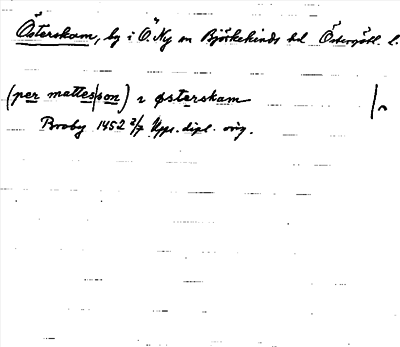 Österskam, by i Ö. Ny sn Björkekinds hd Östergötl. l.
(per mattes|son) i østerskam
Broby 1452 2/7 Upps. dipl. orig.